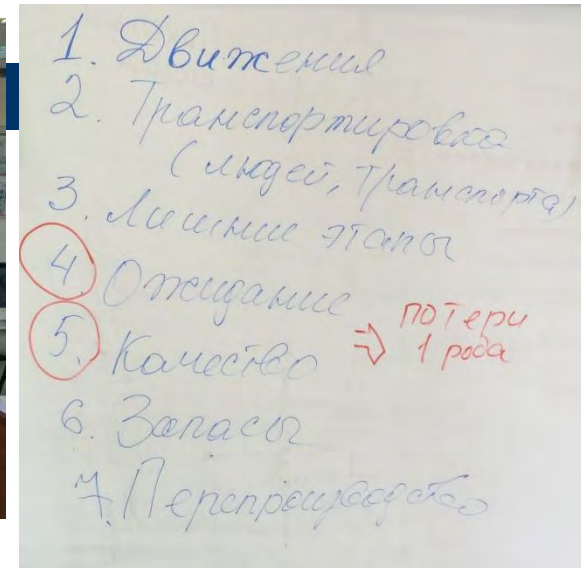 1. Движения
2. Транспортировка
(людей, Транспорта)
3. Лишние этапы
4. Ожидание
5. Качество
⇒ потери
1 рода
6. Запасы
7. Перепроизводство